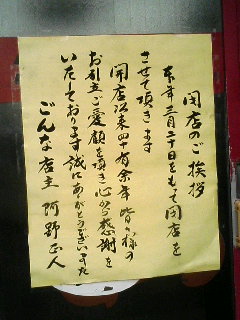 閉店のご挨拶
本年三月二十日をもて閉店を
させて頂きます
開店以来四十有余年皆々様の
お引立ご愛顧を頂き心から感謝を
いたしております誠にありがとうございました
ごんな店主 阿野正人